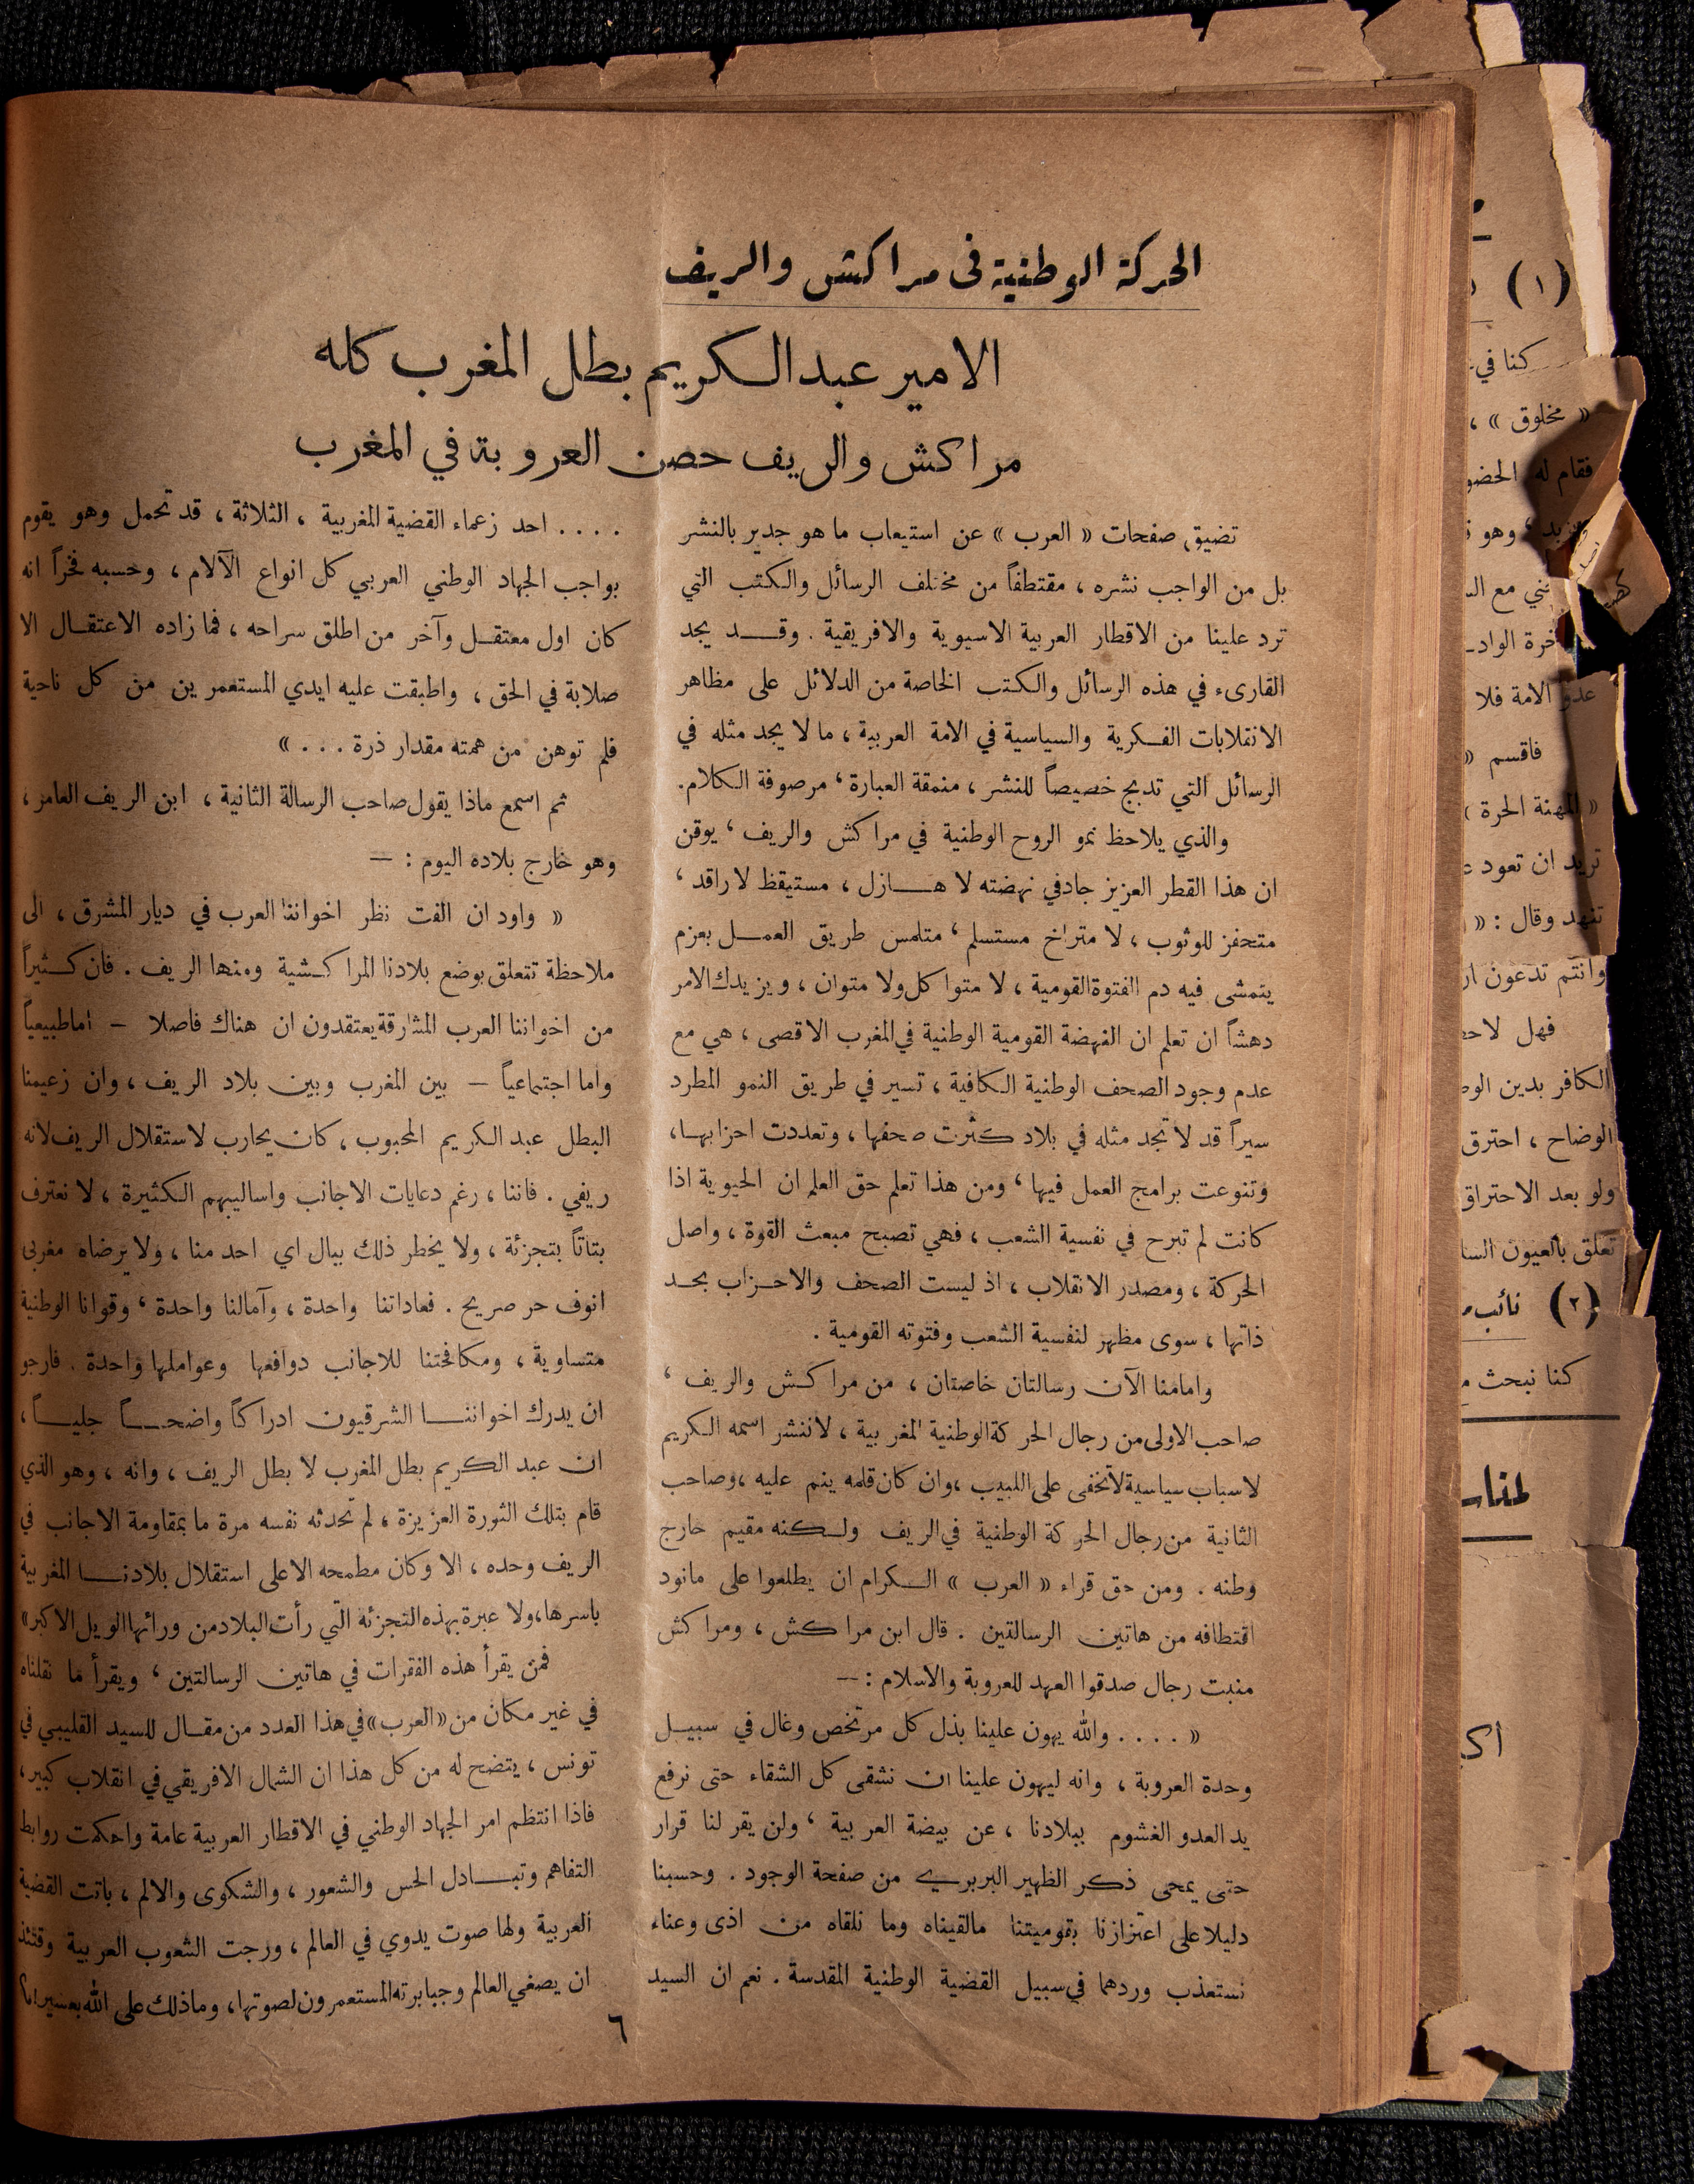 الحركة الوطنية في مراكش والريف
الامير عبد الكريم بطل المغرب كله
مراكش والريف حصن العروبة في المغرب
تضيق صفحات « العرب » عن استيعاب ما هو جدير بالنشر
بل من الواجب نشره ، مقتطفاً من مختلف الرسائل والكتب التي
ترد علينا من الاقطار العربية الاسيوية والافريقية . وقد يجد
القارىء في هذه الرسائل والكتب الخاصة من الدلائل على مظاهر
الانقلابات الفكرية والسياسية في الامة العربية ، ما لا يجد مثله في
الرسائل التي تدبج خصيصاً للنشر ، منمقة العبارة ، مرصوفة الكلام.
والذي يلاحظ نمو الروح الوطنية في مراكش والريف ، يوقن
ان هذا القطر العزيز جاد في نهضته لا هازل ، مستيقظ لا راقد ،
متحفز للوثوب ، لا متراخ مستسلم ، متلمس طريق العمل بعزم
يتمشى فيه دم الفتوة القومية ، لا متواكل ولا متوان ، ويزيدك الامر
دهشاً ان تعلم ان النهضة القومية الوطنية في المغرب الاقصى ، هي مع
عدم وجود الصحف الوطنية الكافية ، تسير في طريق النمو المطرد
سيراً قد لا تجد مثله في بلاد كثرت صحفها ، وتعددت احزابها ،
وتنوعت برامج العمل فيها ، ومن هذا تعلم حق العلم ان الحيوية اذا
كانت لم تبرح في نفسية الشعب ، فهي تصبح مبعث القوة ، واصل
الحركة ، ومصدر الانقلاب ، اذ ليست الصحف والاحزاب بحد
ذاتها ، سوى مظهر لنفسية الشعب وفتوته القومية .
وامامنا الآن رسالتان خاصتان ، من مراكش والريف ،
صاحب الاولى من رجال الحركة الوطنية المغربية ، لاننشر اسمه الكريم
لاسباب سياسية لا تخفى على اللبيب ، وان كان قلمه ينم عليه ، وصاحب
الثانية من رجال الحركة الوطنية في الريف ولكنه مقيم خارج
وطنه . ومن حق قراء « العرب » الكرام ان يطلعوا على مانود
اقتطافه من هاتين الرسالتين . قال ابن مراكش ، ومراكش
منبت رجال صدقوا العهد للعروبة والاسلام : —
« . . . . والله يهون علينا بذل كل مرتخص وغال في سبيل
وحدة العروبة ، وانه ليهون علينا ان نشقى كل الشقاء حتى نرفع
يد العدو الغشوم ببلادنا ، عن بيضة العربية ، ولن يقر لنا قرار
حتى يمحى ذكر الظهير البربري من صفحة الوجود . وحسبنا
دليلا على اعتزازنا بقوميتنا مالقيناه وما نلقاه من اذى وعناء
نستعذب وردهما في سبيل القضية الوطنية المقدسة . نعم ان السيد
. . . . احد زعماء القضية المغربية ، الثلاثة ، قد تحمل وهو يقوم
بواجب الجهاد الوطني العربي كل انواع الآلام ، وحسبه فخراً انه
كان اول معتقل وآخر من اطلق سراحه ، فما زاده الاعتقال الا
صلابة في الحق ، واطبقت عليه ايدي المستعمرين من كل ناحية
فلم توهن من همته مقدار ذرة . . . »
ثم اسمع ماذا يقول صاحب الرسالة الثانية ، ابن الريف العامر ،
وهو خارج بلاده اليوم : —
« واود ان الفت نظر اخواننا العرب في ديار المشرق ، الى
ملاحظة تتعلق بوضع بلادنا المراكشية ومنها الريف . فان كثيراً
من اخواننا العرب المشارقة يعتقدون ان هناك فاصلا — اما طبيعياً
واما اجتماعياً — بين المغرب وبين بلاد الريف ، وان زعيمنا
البطل عبد الكريم المحبوب ، كان يحارب لاستقلال الريف لانه
ريفي . فاننا ، رغم دعايات الاجانب واساليبهم الكثيرة ، لا نعترف
بتاتاً بتجزئة ، ولا يخطر ذلك ببال اي احد منا ، ولا يرضاه مغربى
انوف حر صريح . فعاداتنا واحدة ، وآمالنا واحدة ، وقوانا الوطنية
متساوية ، ومكافحتنا للاجانب دوافعها وعواملها واحدة . فارجو
ان يدرك اخواننا الشرقيون ادراكاً واضحاً جلياً ،
ان عبد الكريم بطل المغرب لا بطل الريف ، وانه ، وهو الذي
قام بتلك الثورة العزيزة ، لم تحدثه نفسه مرة ما بمقاومة الاجانب في
الريف وحده ، الا وكان مطمحه الاعلى استقلال بلادنا المغربية
باسرها، ولا عبرة بهذه التجزئة التي رأت البلاد من ورائها الويل الاكبر»
فمن يقرأ هذه الفقرات في هاتين الرسالتين ، ويقرأ ما نقلناه
في غير مكان من «العرب» في هذا العدد من مقال للسيد القليبي في
تونس ، يتضح له من كل هذا ان الشمال الافريقي في انقلاب كبير ،
فاذا انتظم امر الجهاد الوطني في الاقطار العربية عامة واحكمت روابط
التفاهم وتبادل الحس والشعور ، والشكوى والالم ، باتت القضية
العربية ولها صوت يدوي في العالم ، ورجت الشعوب العربية وقتئذ
ان يصغي العالم وجبابرته المستعمرون لصوتها ، وماذلك على الله بعسير
٦
(١)
كنا في
« مخلوق » ،
فقام له الحضو
وهو
ني مع ال
خرة الواد
عدو الامة فلا
فاقسم «
« المهنة الحرة »
تريد ان تعود
تنهد وقال : «
وانتم تدعون ار
فهل لاحظ
الكافر بدين الوط
الوضاح ، احترق
ولو بعد الاحتراق
تعلق بالعيون السا
(٢) نائب
كنا نبحث م
لمنا
أكـ